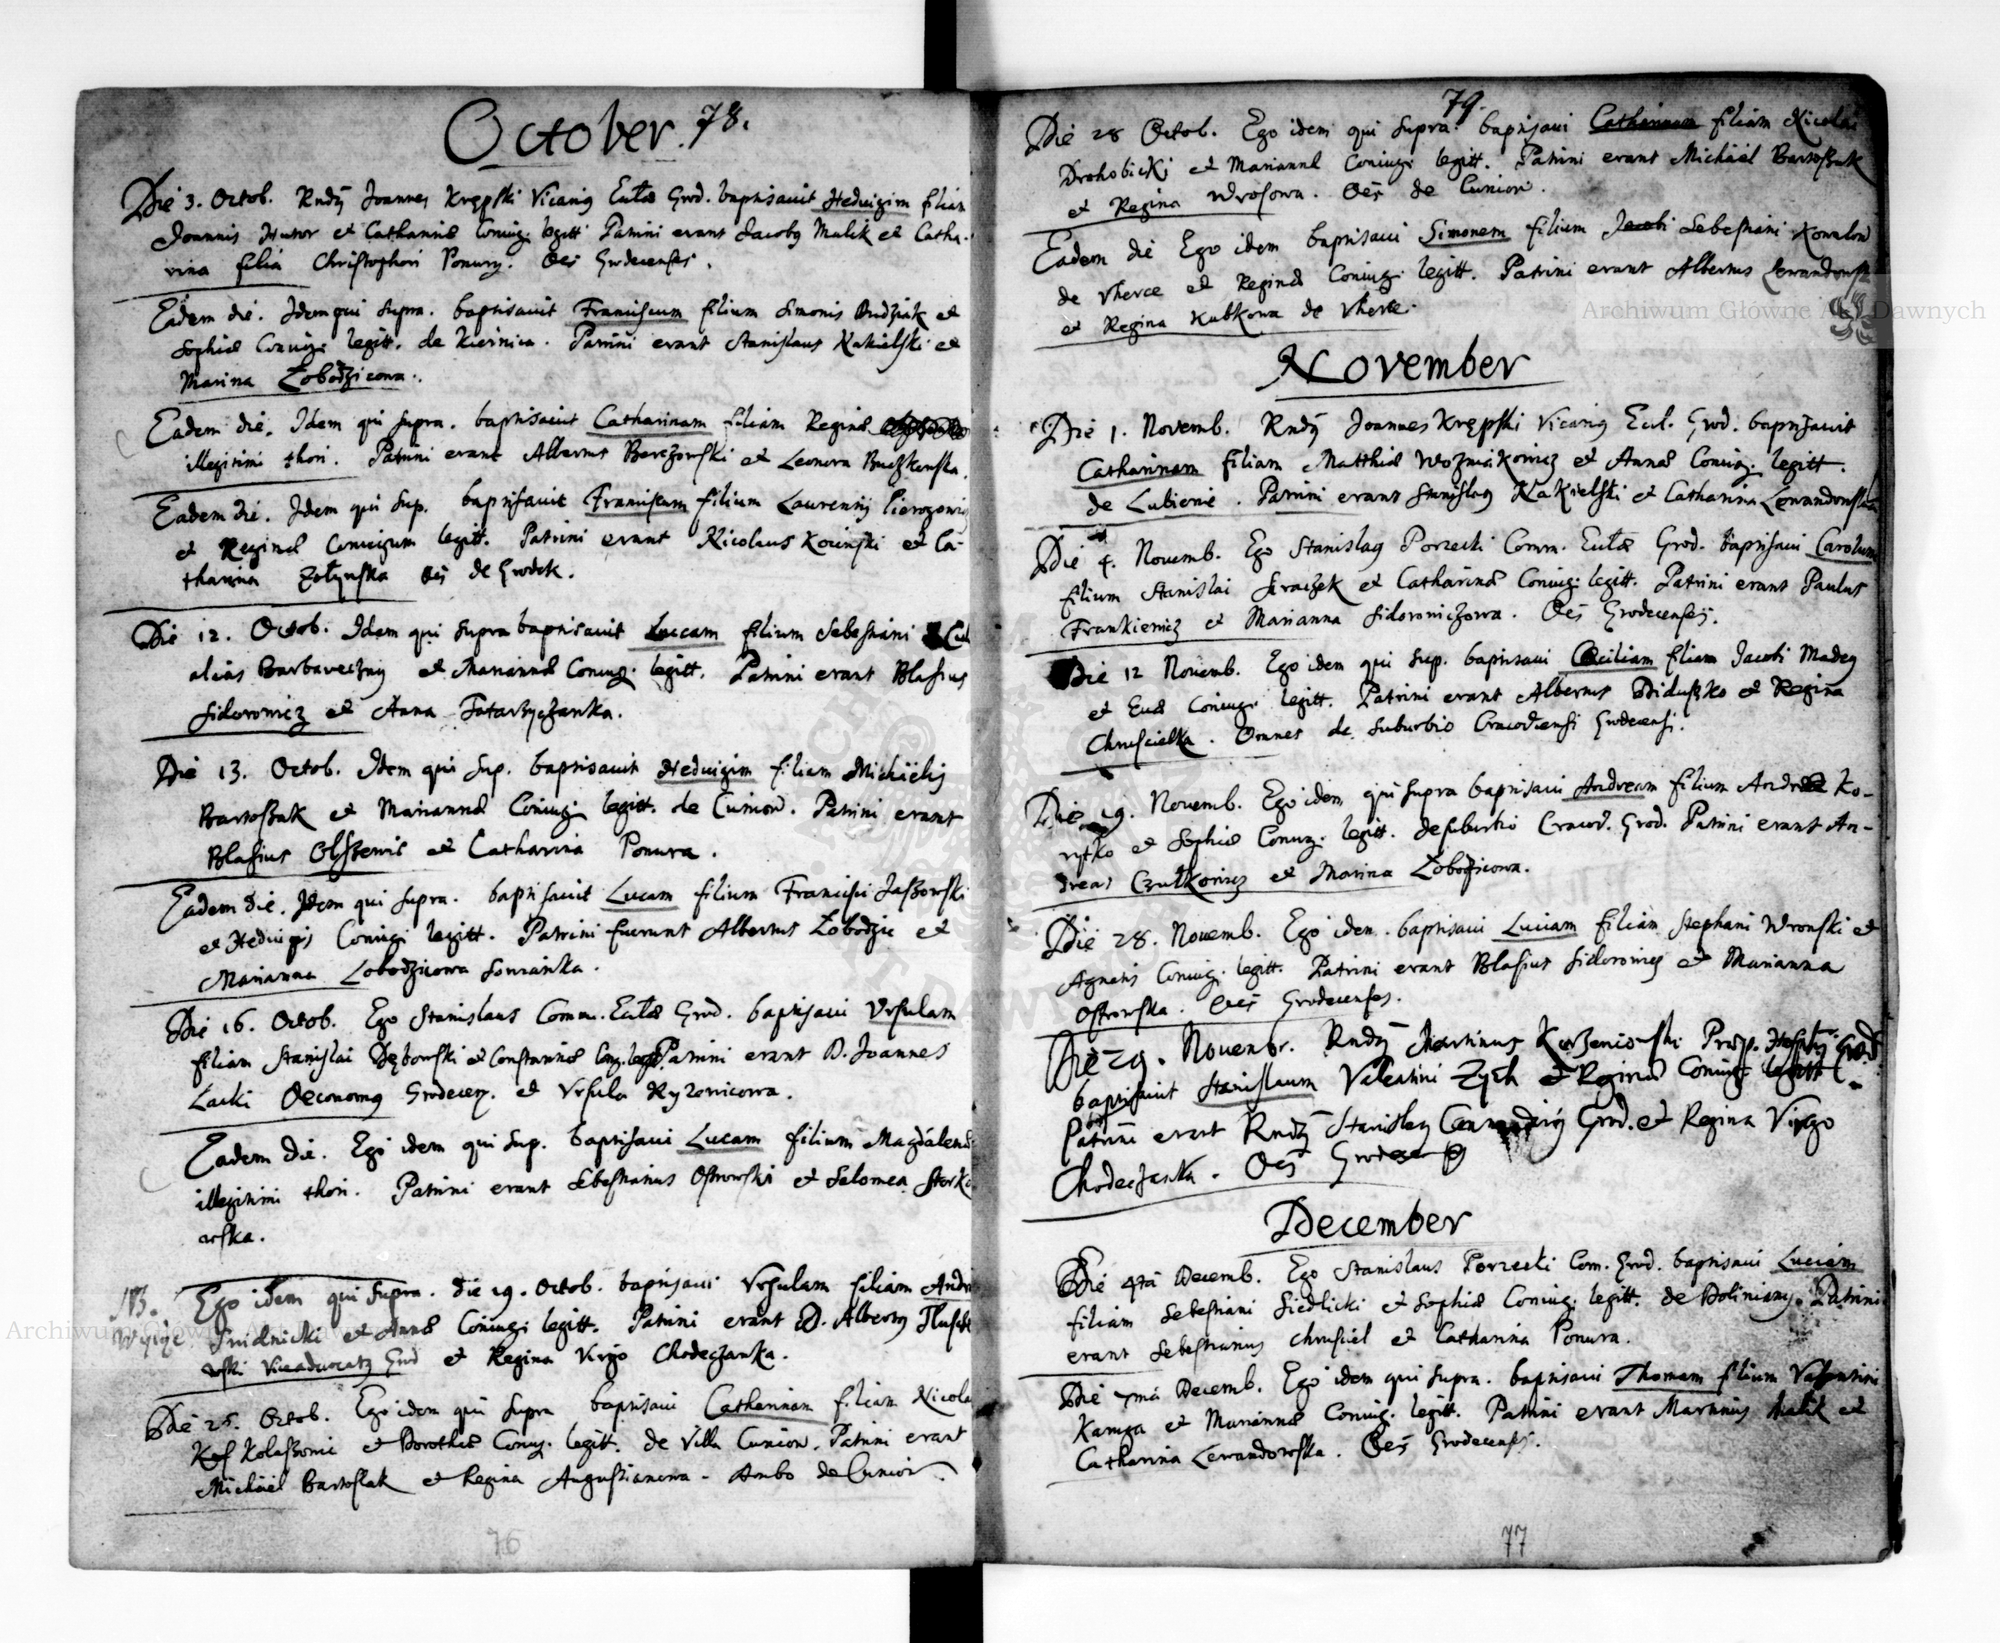 October. 78.
Die 3. Octob. Rndꝯ Joannes Krępski Vicariꝯ Eccłæ Grod. baptisavit Heduigim filiam
Joannis Hutor et Catharinæ Coniug. legitt. Patrini erant Jacobꝯ Malik et Catha-
rina filia Christophori Ponury. Oēs Grodecenses.
Eadem die. Idem qui supra. baptisavit Franciscum filium Simonis Budziak et
Sophiæ Coniug. legitt. de Kiernica. Patrini erant Stanislaus Kakielski et
Marina Łobodzicowa.
Eadem die. Idem qui supra. baptisavit Catharinam filiam Reginæ
illegitimi thori. Patrini erant Albertus Berezowski et Leonora Buczkowska.
Eadem die. Idem qui sup. baptisavit Franciscum filium Laurentij Pierogowicz
et Reginæ Coniugum legitt. Patrini erant Nicolaus Koiński et Ca-
tharina Zołynska Oēs de Grodek.
Die 12. Octob. Idem qui supra baptisavit Luccam filium Sebestiani
alias Barbareczny et Mariannæ Coniug. legitt. Patrini erant Blasius
Sidorowicz et Anna Tatarzyczanka.
Die 13. Octob. Idem qui sup. baptisavit Heduigim filiam Michaëlis
Bartoszak et Mariannæ Coniug. legitt. de Cuniow. Patrini erant
Blasius Olszewic et Catharina Ponura.
Eadem die. Idem qui supra. baptisavit Lucam filium Francisci Jaszowski
et Heduigis Coniug. legitt. Patrini fuerunt Albertus Łobodzic et
Marianna Łobodzicowa
Die 16. Octob. Ego Stanislaus Comm. Eccłæ Grod. baptisavi Vrsulam
filiam Stanislai Dębowski et Constantiæ Coniug. legitt. Patrini erant D. Joannes
Lacki Oeconomꝯ Grodecen. et Vrsula Ryzowicowa.
Eadem die. Ego idem qui sup. baptisavi Lucam filium Magdalenæ
illegitimi thori. Patrini erant Sebestianus Ostrowski et Salomea Storko
wska.
NB.
Wyzye
Ego idem qui supra. die 19. Octob. baptisavi Vrsulam filiam Andreæ
Smidnicki et Annæ Coniug. legitt. Patrini erant D. Albertꝯ
wski Viceadvocatꝯ Grod et Regina Virgo Chodeczanka.
Die 25. Octob. Ego idem qui supra baptisavi Catharinam filiam Nicolai
Kolaszowi et Dorotheæ Coniug. legitt. de Villa Cuniow. Patrini erant
Michaël Bartoszak et Regina Augustianowa - Ambo de Cuniow.
76
79.
Die 28 Octob. Ego idem qui supra baptisavi Catharinam filiam Nicolai
Drohobicki et Mariannæ Coniug. legitt. Patrini erant Michaël Bartoszak
et Regina Wrosowa. Oēs de Cuniow.
Eadem die Ego idem baptisavi Simonem filium Jacobi Sebestiani Kowalow
de Vherce et Reginæ Coniug. legitt. Patrini erant Albertus Lewandowski
et Regina Kubkowa de Vherce.
November
Die 1. Novemb. Rndꝯ Joannes Krępski Vicariꝯ Eccl. Grod. baptisavit
Catharinam filiam Matthiæ Wozniakowicz et Annæ Coniug. legitt.
de Lubienie. Patrini erant Stanislaꝯ Kakielski et Catharina Lewandowska
Die 4. Novemb. Ego Stanislaꝯ Porzecki Comm. Eccłæ Grod. baptisavi Carolum
filium Stanislai Siraczek et Catharinæ Coniug. legitt. Patrini erant Paulus
Frankiewicz et Marianna Sidorowiczowa. Oēs Grodecenses.
Die 12 Novemb. Ego idem qui sup. baptisavi Cæciliam filiam Jacobi Madey
et Evæ Coniug. legitt. Patrini erant Albertus Diduszko et Regina
Chruscielka. Omnes de Suburbio Cracoviensi Grodecensi.
Die 19. Novemb. Ego idem qui supra baptisavi Andream filium Andreæ Ko-
rytko et Sophiæ Coniug. legitt. de suburbio Cracov. Grod. Patrini erant An-
dreas Czułkowicz et Marina Łobodzicowa.
Die 28. Novemb. Ego idem. baptisavi Luciam filiam Stephani Wronski et
Agnetis Coniug. legitt. Patrini erant Blasius Sidorowicz et Marianna
Ostrowska. Oēs Grodecenses.
Die 29. Novembr. Rndꝯ Martinus Korzeniowski Præp. Grod.
baptisavit Stanislaum Valentini Zych et Reginæ Coniug. legitt.
Patrini erant Rndꝯ Stanislaꝯ Grod. et Regina Virgo
Chodeczanka. Oēs
December
Die 4tâ Decemb. Ego Stanislaus Porzecki Com. Grod. baptisavi Luciam
filiam Sebestiani Siedlicki et Sophiæ Coniug. legitt. de Doliniany. Patrini
erant Sebestianus Chrusciel et Catharina Ponura.
Die 7mâ Decemb. Ego idem qui supra. baptisavi Thomam filium Valentini
Kamza et Mariannæ Coniug. legitt. Patrini erant Martinus Malik et
Catharina Lewandowska. Oēs Grodecenses.
77
Archiwum Główne Akt Dawnych